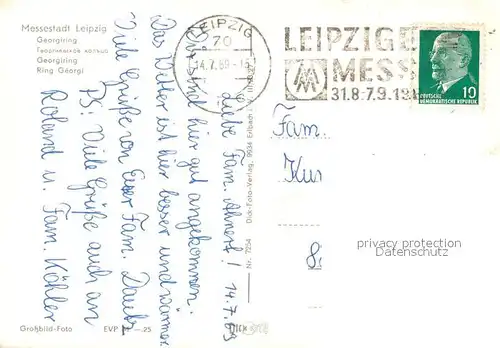 Messestadt Leipzig
Georgiring
Георгиевское кольцо
Georgiring
Ring Géorgi
LEIPZIG
70
14.7.69-15
LEIPZIGE
MESS
31.8.-7.9.19
DEUTSCHE
DEMOKRATISCHE REPUBLIK
10
14.7.69
Liebe Fam. Ahnert!
Wir sind hier gut angekommen.
Das Wetter ist hier besser und wärmer.
Viele Grüße von Eurer Fam. Dautz
PS: Viele Grüße auch an
Roland u. Fam. Köhler
Dick-Foto-Verlag, 9934 Erlbach
Nr. 7254
Fam.
Kur
8
privacy protection
Datenschutz
Großbild-Foto
EVP
25